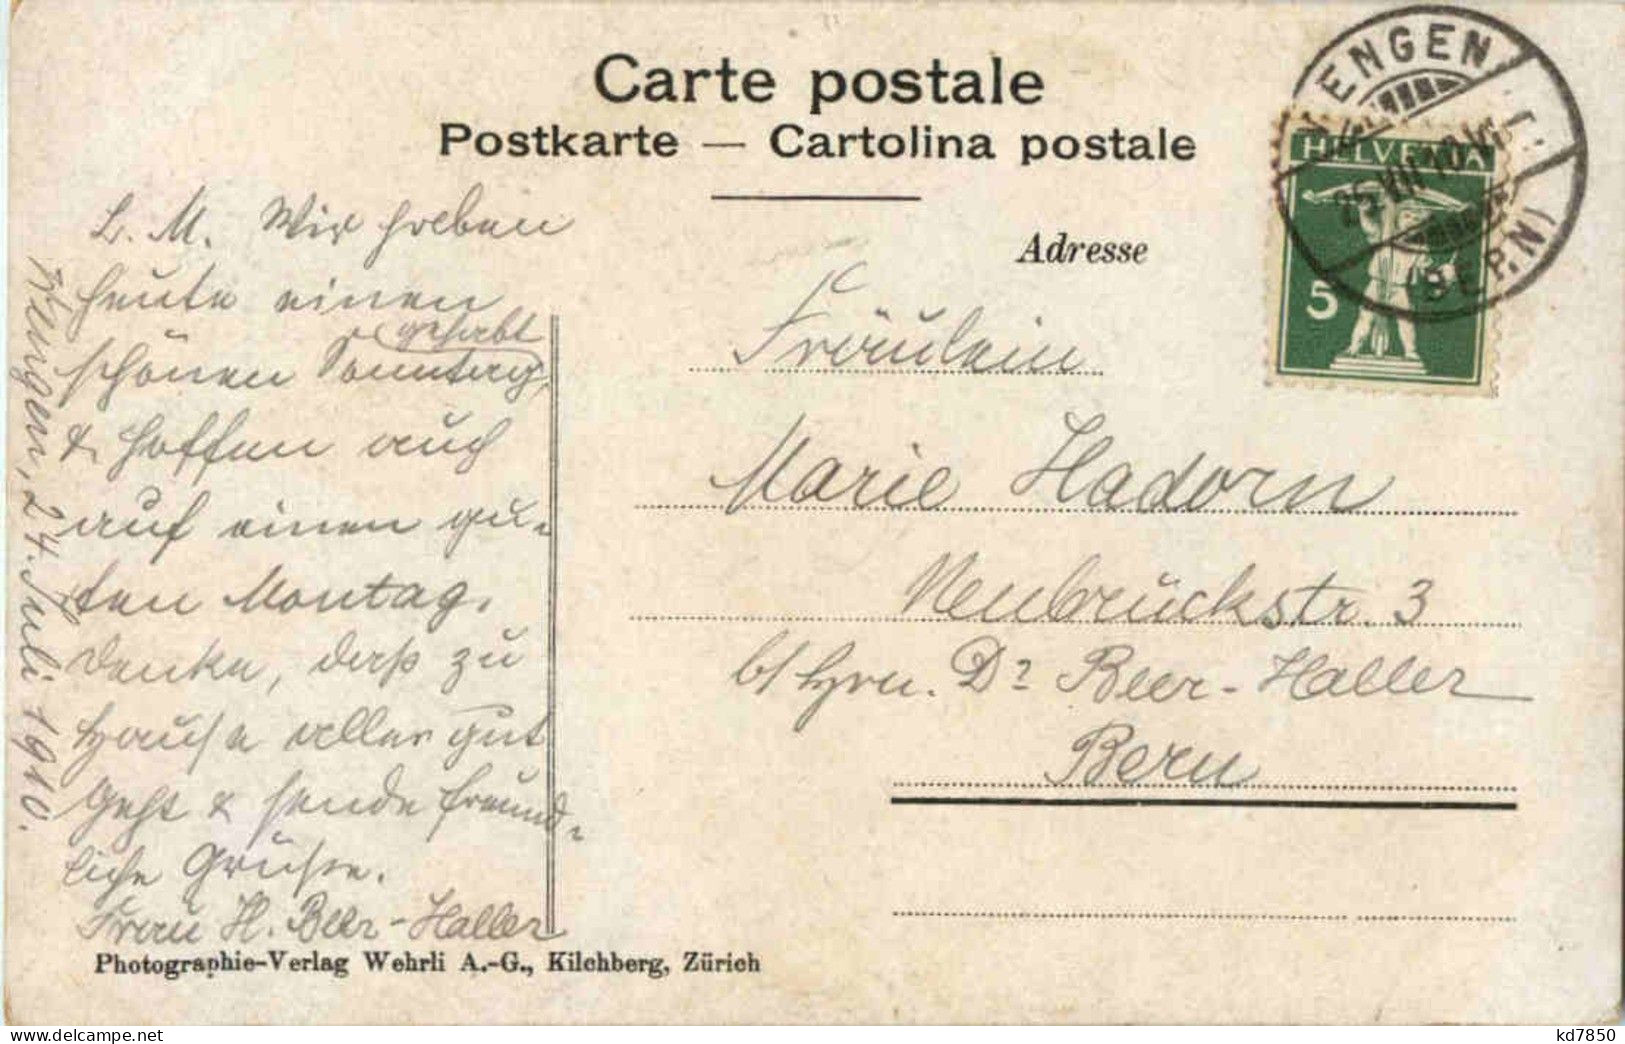 Carte postale
Postkarte — Cartolina postale
Adresse
WENGEN
25.VII.10.VI
(BERN)
HELVETIA
5
L. M. Wir haben
heute einen
schönen Sonntag gehabt,
& hoffen auch
auf einen gu-
ten Montag.
Denke, daß zu
Hause alles gut
geht & sende freund-
liche Grüße.
Frau H. Beer-Haller
Wengen, 24. Juli 1910.
Fräulein
Marie Hadorn
Neubrückstr. 3
b/ Hrn. Dr Beer-Haller
Bern
Photographie-Verlag Wehrli A.-G., Kilchberg, Zürich
kd7850